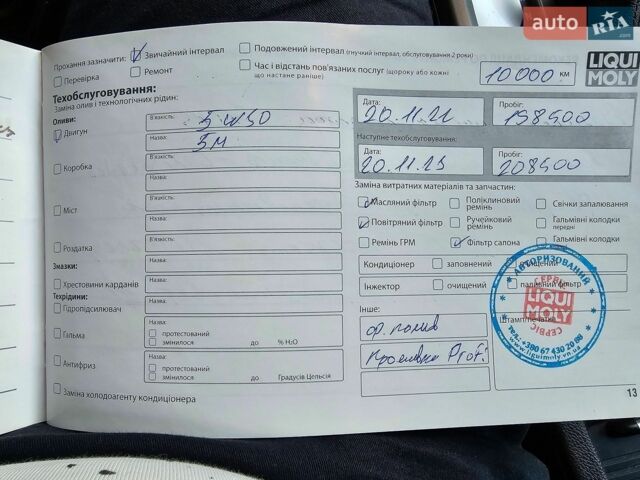 auto RIA.com
Прохання зазначити: Звичайний інтервал Подовжений інтервал (гнучкий інтервал, обслуговування 2 роки)
Перевірка Ремонт Час і відстань пов'язаних послуг (щороку або кожні)
що настане раніше)
10000 км
LIQUI MOLY
Техобслуговування:
Заміна олив і технологічних рідин:
Оливи:
Двигун
В'язкість: 5W30
Назва:
Коробка
В'язкість:
Назва:
Міст
В'язкість:
Назва:
Роздатка
В'язкість:
Назва:
Змазки:
Хрестовини карданів
Техрідини:
Гідропідсилювач
Гальма
Назва:
протестований
змінилося до % H₂O
Антифриз
Назва:
протестований
змінилося до Градусів Цельсія
Заміна холодоагенту кондиціонера
Дата: Пробіг:
20.11.22 198500
Наступне техобслуговування:
Дата: Пробіг:
20.11.23 208500
Заміна витратних матеріалів та запчастин:
Масляний фільтр Поліклиновий ремінь Свічки запалювання
Повітряний фільтр Ручейковий ремінь Гальмівні колодки передні
Ремінь ГРМ Фільтр салона Гальмівні колодки
Кондиціонер заповнений очищений
Інжектор очищений паливний фільтр
Інше:
Штамп/печатка
АВТОРИЗОВАНИЙ
СЕРВІС
LIQUI MOLY
СЕРВІС
тел.: +380 67 430 20 88
www.liquimoly.vn.ua
13